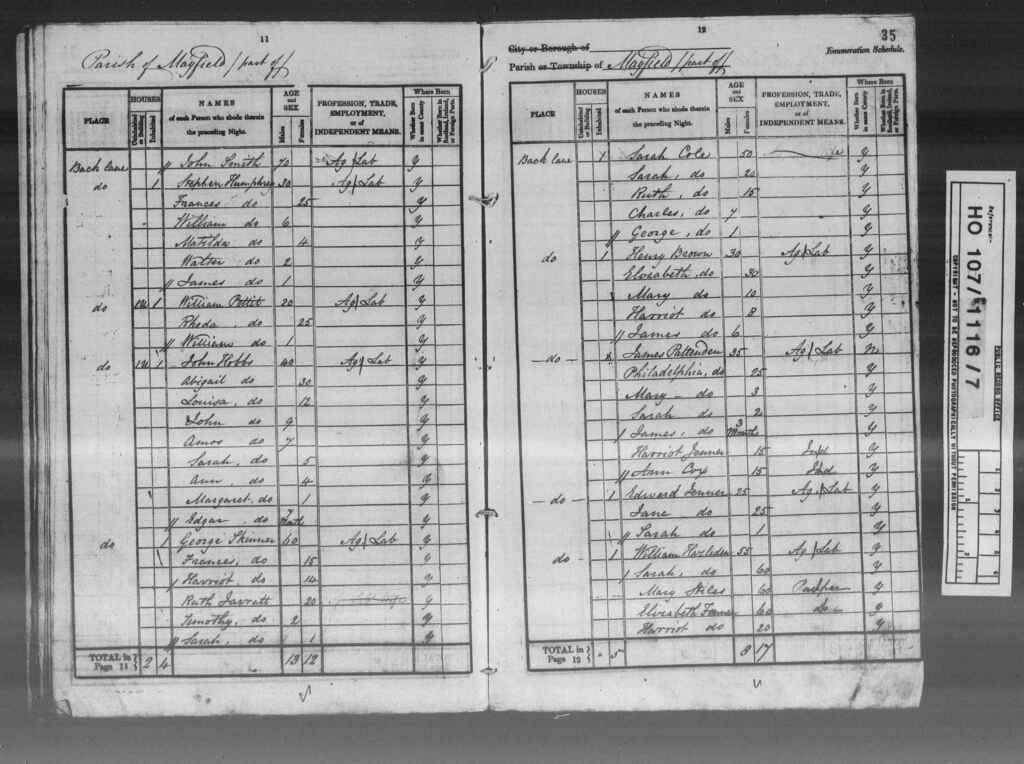 11
Parish of Mayfield (part of)
PLACE
HOUSES
Uninhabited or Building
Inhabited
NAMES of each Person who abode therein the preceding Night.
AGE and SEX
Males
Females
PROFESSION, TRADE, EMPLOYMENT, or of INDEPENDENT MEANS.
Where Born
Whether Born in same County
Whether Born in Scotland, Ireland, or Foreign Parts.
Back lane John Smith 70 Ag Lab y
do 1 Stephen Humphrey 30 Ag Lab y
Frances do 25 y
William do 6 y
Matilda do 4 y
Walter do 2 y
James do 1 y
do 1 William Pettit 20 Ag Lab y
Rhoda do 25 y
William do 1 y
do 1 John Hobbs 40 Ag Lab y
Abigail do 30 y
Louisa, do 12 y
John do 9 y
Amos do 7 y
Sarah, do 5 y
Ann, do 4 y
Margaret, do 1 y
Edgar do 7 Mnth y
do 1 George Skinner 60 Ag Lab y
Frances, do 15 y
Harriot do 14 y
Ruth Jarratt 20 y
Timothy, do 2 y
Sarah, do 1 y
TOTAL in Page 11 2 4 13 12
12
35
City or Borough of
Enumeration Schedule.
Parish or Township of Mayfield (part of)
PLACE
HOUSES
Uninhabited or Building
Inhabited
NAMES of each Person who abode therein the preceding Night.
AGE and SEX
Males
Females
PROFESSION, TRADE, EMPLOYMENT, or of INDEPENDENT MEANS.
Where Born
Whether Born in same County
Whether Born in Scotland, Ireland, or Foreign Parts.
Back lane 1 Sarah Cole 50 y
Sarah, do 20 y
Ruth, do 15 y
Charles, do 7 y
George, do 1 y
do 1 Henry Brown 30 Ag Lab y
Elizabeth do 30 y
Mary do 10 y
Harriot do 8 y
James do 6 y
do James Pattenden 35 Ag Lab n
Philadelphia, do 25 y
Mary do 3 y
Sarah do 2 y
James, do 3 Months y
Harriot Jenner 15 y
Ann Cox 15 y
do 1 Edward Jenner 25 Ag Lab y
Jane do 25 y
Sarah do 1 y
do 1 William Hazelden 55 Ag Lab y
Sarah, do 60 y
Mary Stiles 60 Pauper y
Elizabeth 60 Do y
Harriot do 20 y
TOTAL in Page 12 5 8 17
Reference:-
HO 107/1116/7
PUBLIC RECORD OFFICE
COPYRIGHT - NOT TO BE REPRODUCED PHOTOGRAPHICALLY WITHOUT PERMISSION